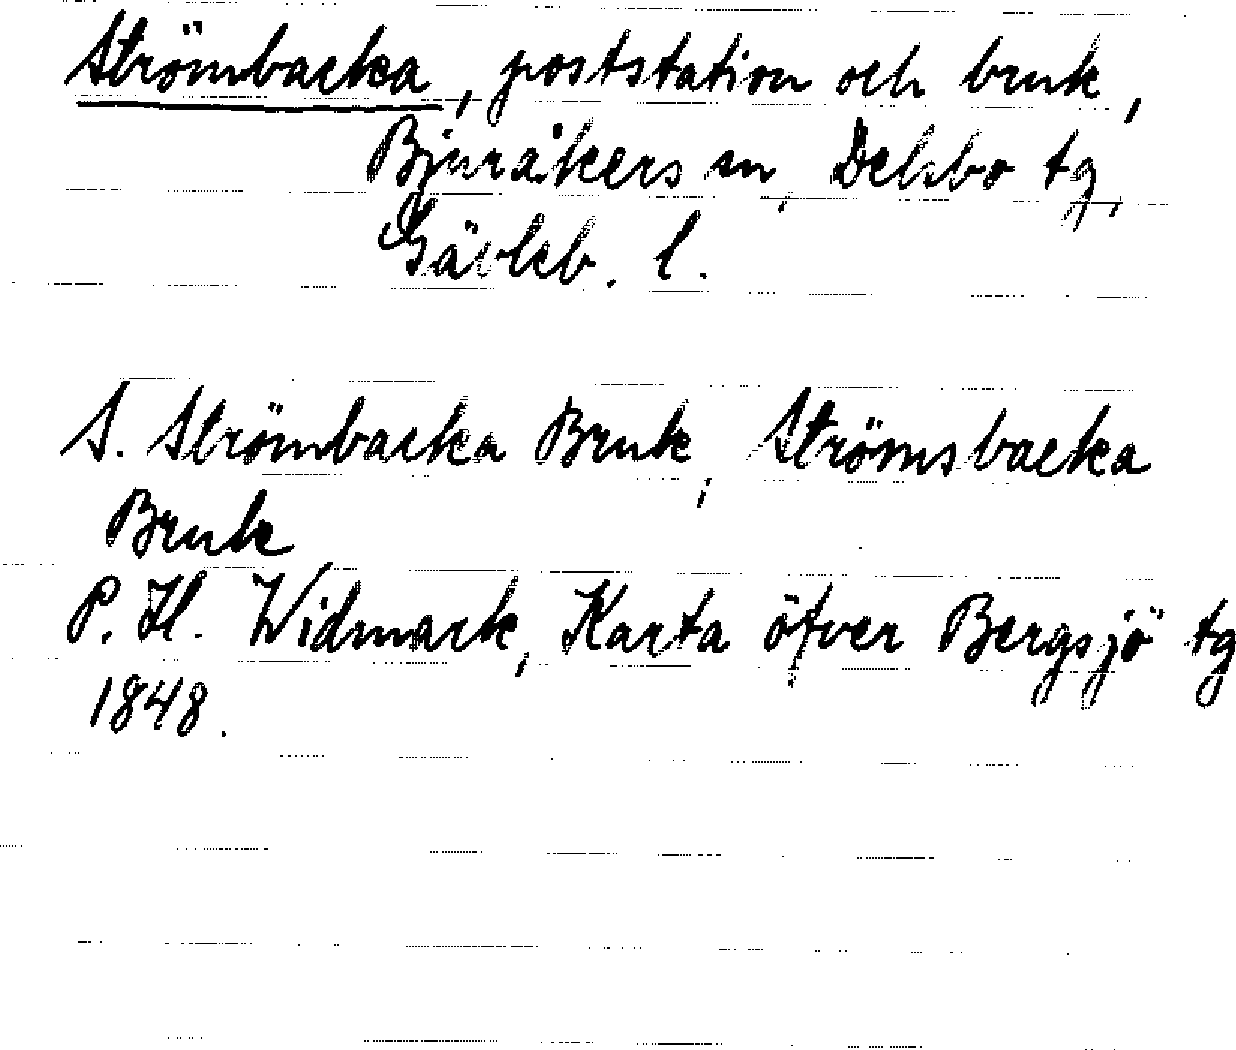 Strömbacka, poststation och bruk,
Bjuråkers sn, Delsbo tg,
Gävleb. l.
S. Strömbacka Bruk, Strömsbacka
Bruk
P. H. Widmark, Karta öfver Bergsjö tg
1848.